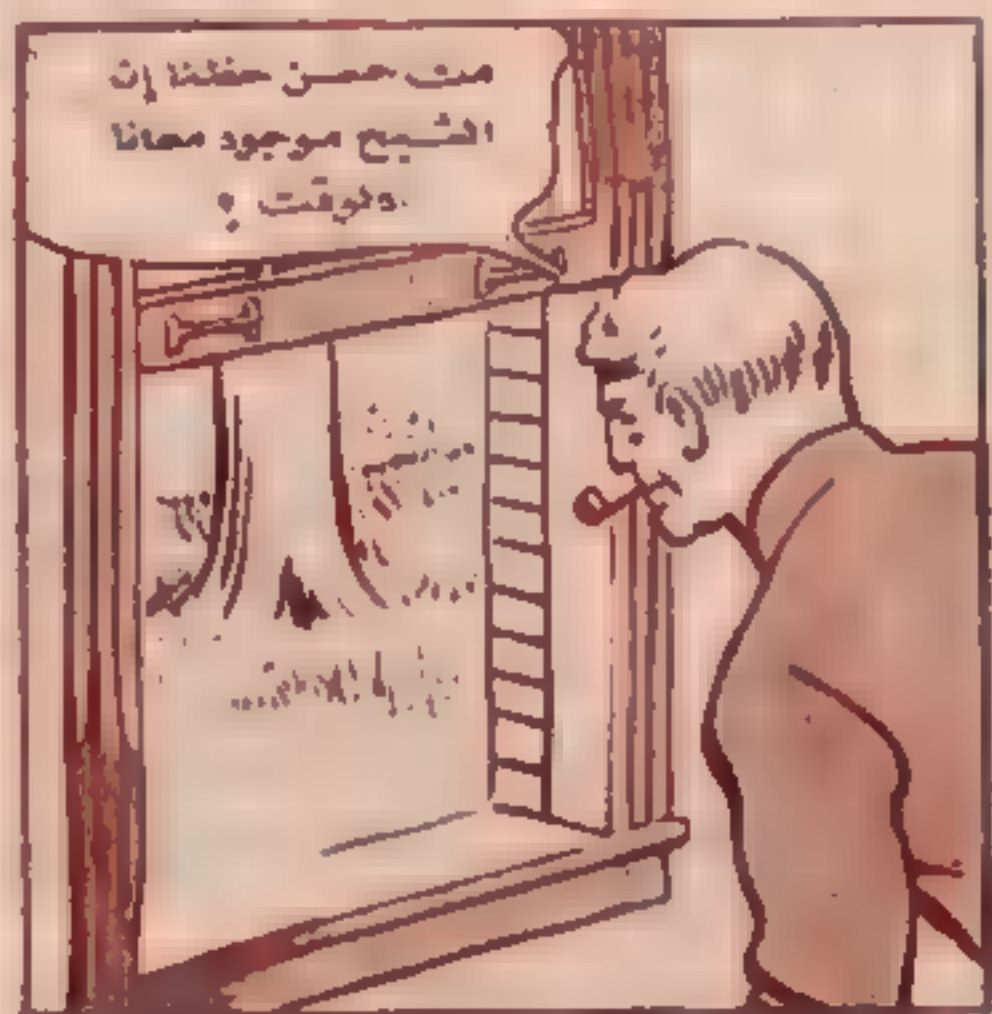 من حسن حظنا إن
الشبح موجود معانا
دلوقت !